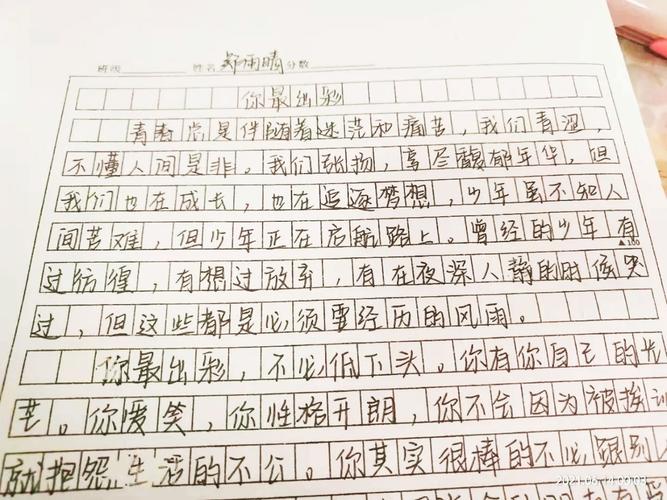 班级 姓名 郑雨晴 分数
你最出彩
青春总是伴随着迷茫和痛苦，我们青涩，
不懂人间是非。我们张扬，享尽馥郁年华，但
我们也在成长，也在追逐梦想，少年虽不知人
间苦难，但少年正在启航路上。曾经的少年有
▲100
过彷徨，有想过放弃，有在夜深人静的时候哭
过，但这些都是必须要经历的风雨。
你最出彩，不必低下头。你有你自己的光
芒。你爱笑，你性格开朗，你不会因为被挨训
就抱怨生活的不公。你其实很棒的不必跟别人
2021-06-14